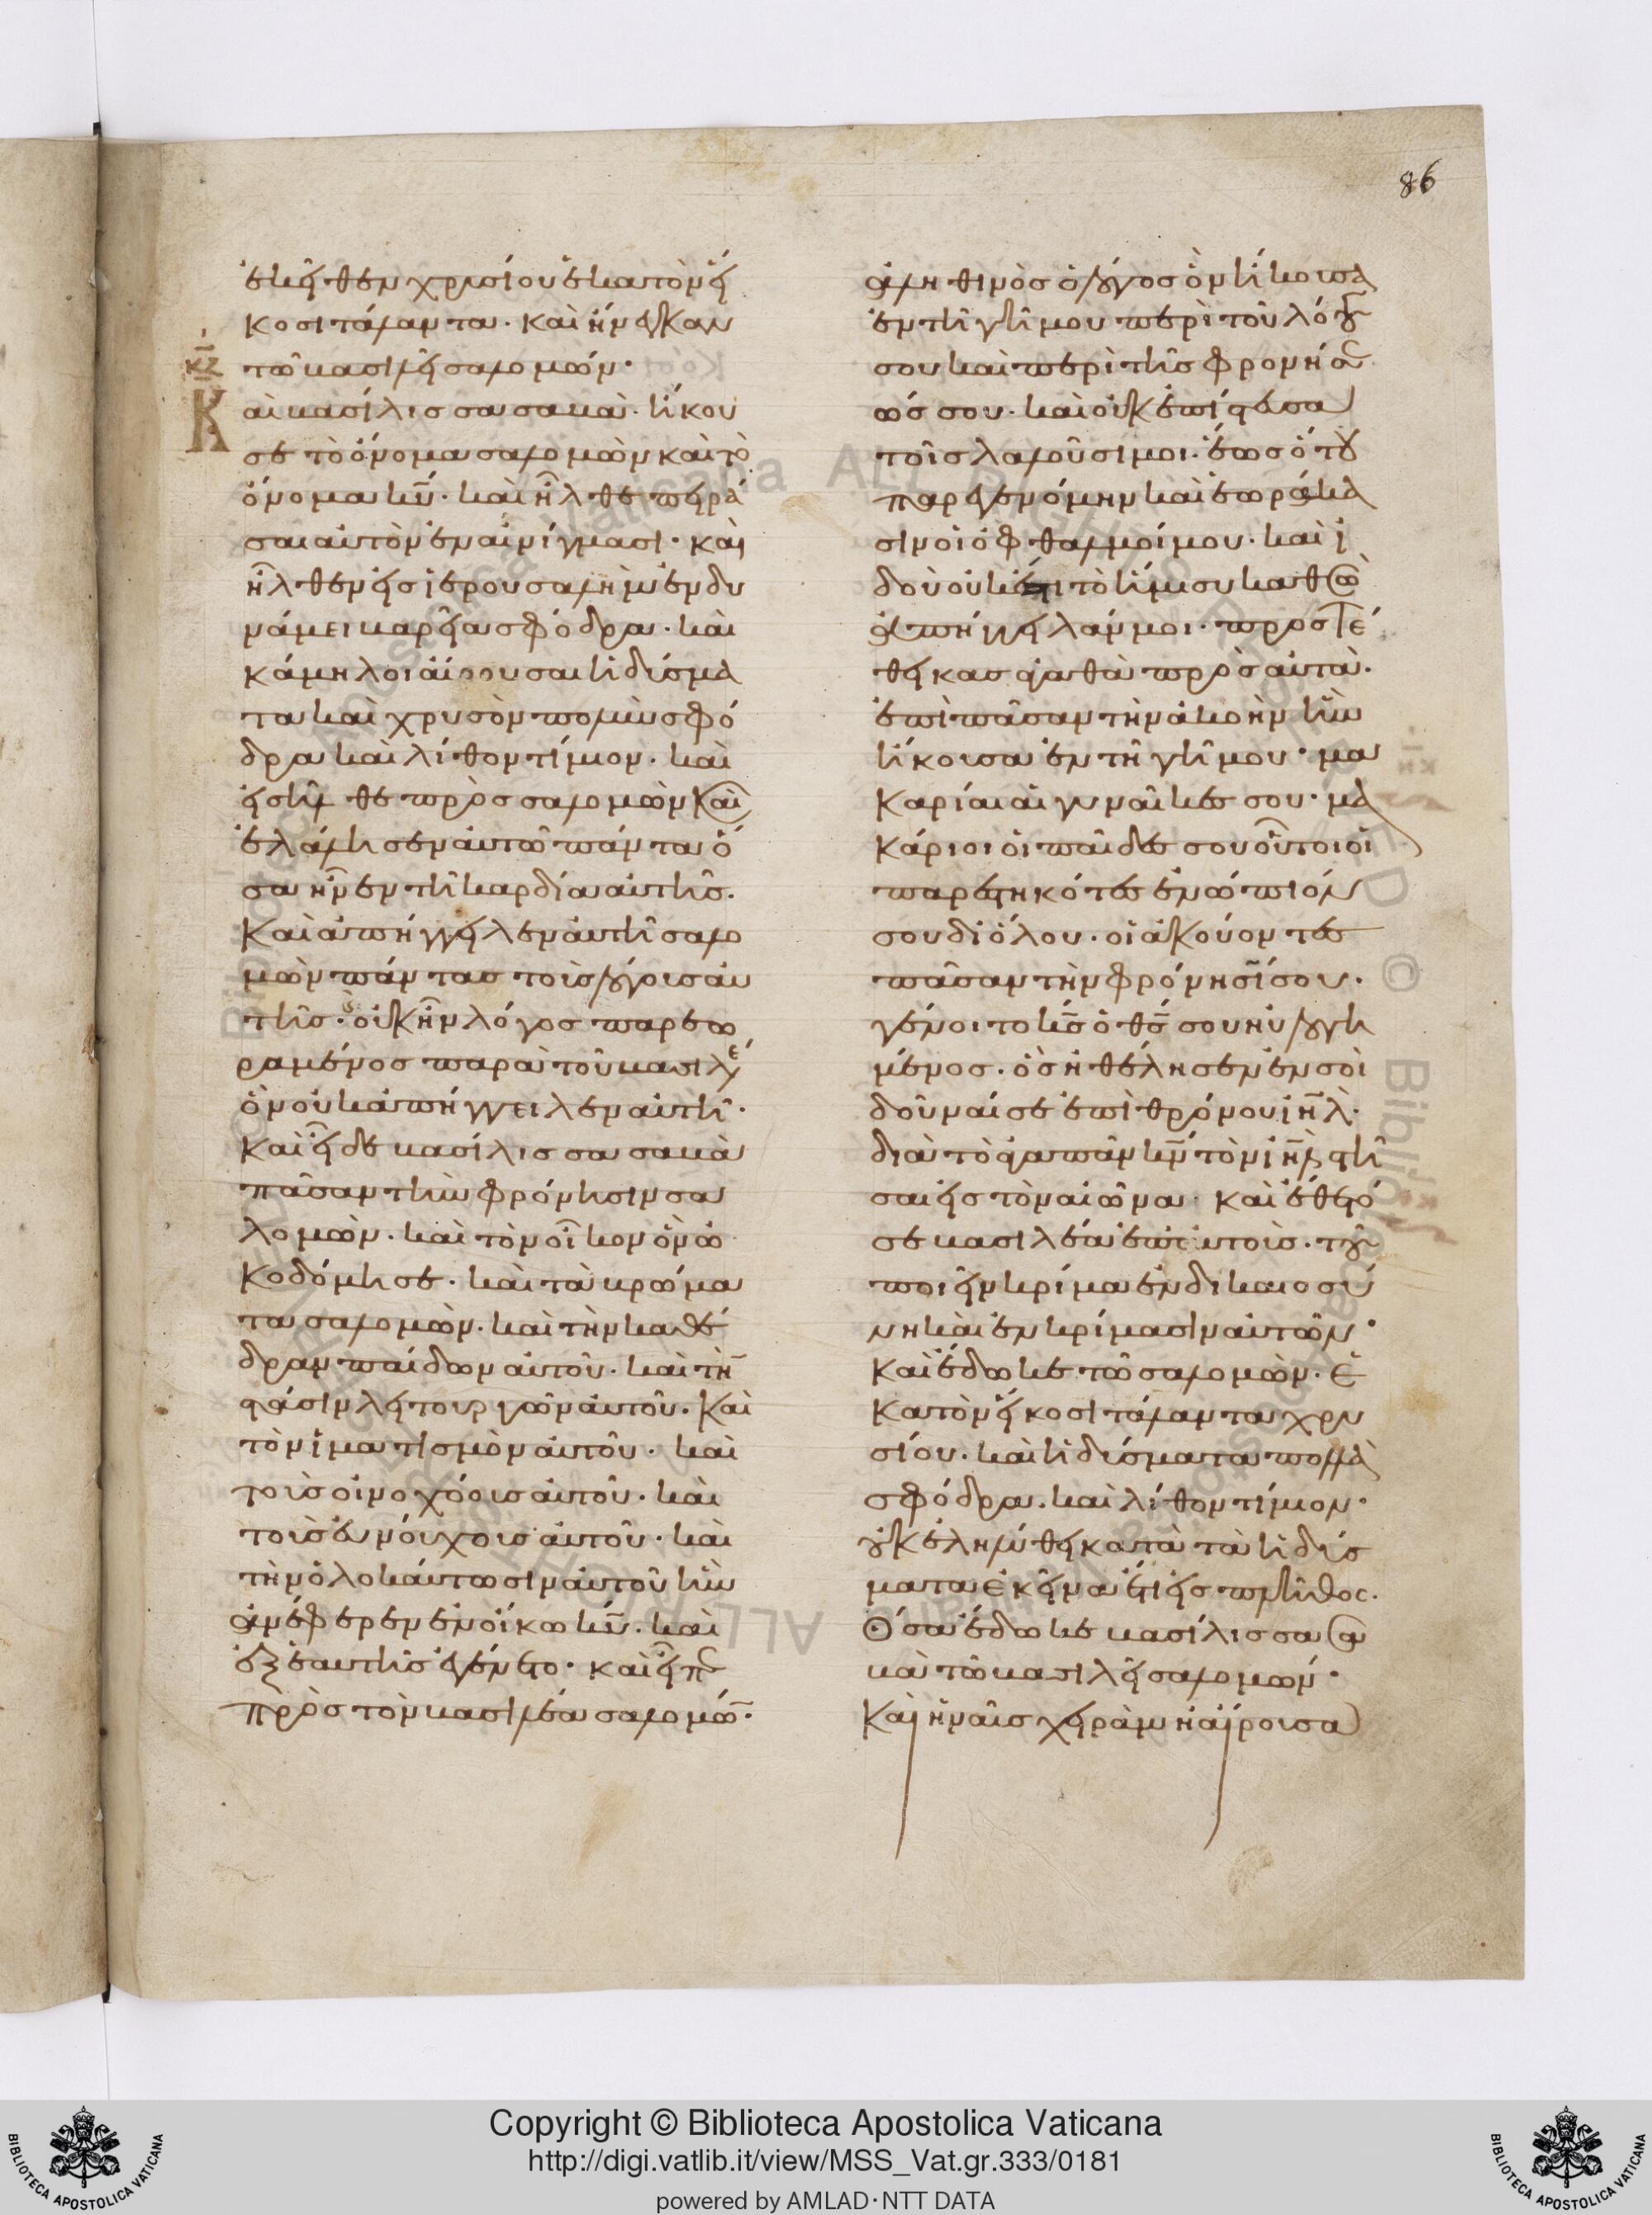 86
ἐκεῖθεν χρυσίου ἑκατὸν εἴ
κοσι τάλαντα. καὶ ἤνεγκαν
τῶ βασιλεῖ σαλομών.
κζ
Καὶ βασίλισσα σαβὰ. ἤκου
σε τὸ ὄνομα σαλομὼν καὶ τὸ
ὄνομα κῡ. καὶ ἦλθε πειρά
σαι αὐτὸν ἐν αἰνίγμασι. καὶ
ἦλθεν εἰς ἱερουσαλὴμ ἐν δυ
νάμει βαρεῖα σφόδρα. καὶ
κάμηλοι αἴρουσαι ἡδύσμα
τα καὶ χρυσὸν πολὺν σφό
δρα καὶ λίθον τίμιον. καὶ
εἰσῆλθε πρὸς σαλομὼν καὶ
ἐλάλησεν αὐτῶ πάντα ὅ
σα ἦν ἐν τῆ καρδία αὐτῆς.
Καὶ ἀπήγγειλεν αὐτῆ σαλο
μὼν πάντας τοὺς λόγους αὐ
τῆς. οὐκ ἦν λόγος παρεω
ραμένος παρὰ τοῦ βασιλέ
ὃν οὐκ ἀπήγγειλεν αὐτῆ.
Καὶ εἶδε βασίλισσα σαβὰ
πᾶσαν τὴν φρόνησιν σα
λομὼν. καὶ τὸν οἶκον ὃν ὠ
κοδόμησε. καὶ τὰ βρώμα
τα σαλομὼν. καὶ τὴν καθέ
δραν παίδων αὐτοῦ. καὶ τὴν
στάσιν λειτουργῶν αὐτοῦ. καὶ
τὸν ἱματισμὸν αὐτοῦ. καὶ
τοὺς οἰνοχόους αὐτοῦ. καὶ
τοὺς εὐνούχους αὐτοῦ. καὶ
τὴν ὁλοκαύτωσιν αὐτοῦ ἣν
ἀνέφερεν ἐν οἴκω κῡ. καὶ
ἐξ ἑαυτῆς ἐγένετο. καὶ εἶπε
πρὸς τὸν βασιλέα σαλομών.
ἀληθινὸς ὁ λόγος ὃν ἤκουσα
ἐν τῆ γῆ μου περὶ τοῦ λόγου
σου καὶ περὶ τῆς φρονήσε
ώς σου. καὶ οὐκ ἐπίστευσα
τοῖς λαλοῦσί μοι. ἕως ὅτου
παρεγενόμην καὶ ἑωράκα
σιν οἱ ὀφθαλμοί μου. καὶ ἰ
δοὺ οὐκ ἔστι τὸ ἥμισυ καθὼ
ἀπήγγειλάν μοι. προστέ
θεικας ἀγαθὰ πρὸς αὐτὰ.
ἐπὶ πᾶσαν τὴν ἀκοὴν ἣν
ἤκουσα ἐν τῆ γῆ μου. μα
κάριαι αἱ γυναῖκες σου. μα
κάριοι οἱ παῖδες σου οὗτοι οἱ
παρεστηκότες ἐνώπιόν
σου διόλου. οἱ ἀκούοντες
πᾶσαν τὴν φρόνησίν σου.
γένοιτο κ̄ς ὁ θ̄ς σου ηὐλογη
μένος. ὃς ἠθέλησεν ἐν σοὶ
δοῦναί σε ἐπὶ θρόνου ιηλ.
διὰ τὸ ἀγαπᾶν κ̄ν τὸν ιηλ στῆ
σαι εἰς τὸν αἰῶνα. καὶ ἔθετό
σε βασιλέα ἐπ' αὐτοὺς. τοῦ
ποιεῖν κρίμα ἐν δικαιοσύ
νη καὶ ἐν κρίμασιν αὐτῶν.
Καὶ ἔδωκε τῶ σαλομὼν. ἑ
κατὸν εἴκοσι τάλαντα χρυ
σίου. καὶ ἡδύσματα πολλὰ
σφόδρα. καὶ λίθον τίμιον.
οὐκ ἐληλύθει κατὰ τὰ ἡδύσ
ματα ἐκεῖνα ἔτι εἰς πλῆθος.
Ὅσα ἔδωκε βασίλισσα σα
βὰ τῶ βασιλεῖ σαλομών.
Καὶ ἡ ναῦς χειρὰμ ἡ αἴρουσα
Copyright © Biblioteca Apostolica Vaticana
http://digi.vatlib.it/view/MSS_Vat.gr.333/0181
powered by AMLAD·NTT DATA
BIBLIOTECA APOSTOLICA VATICANA
BIBLIOTECA APOSTOLICA VATICANA